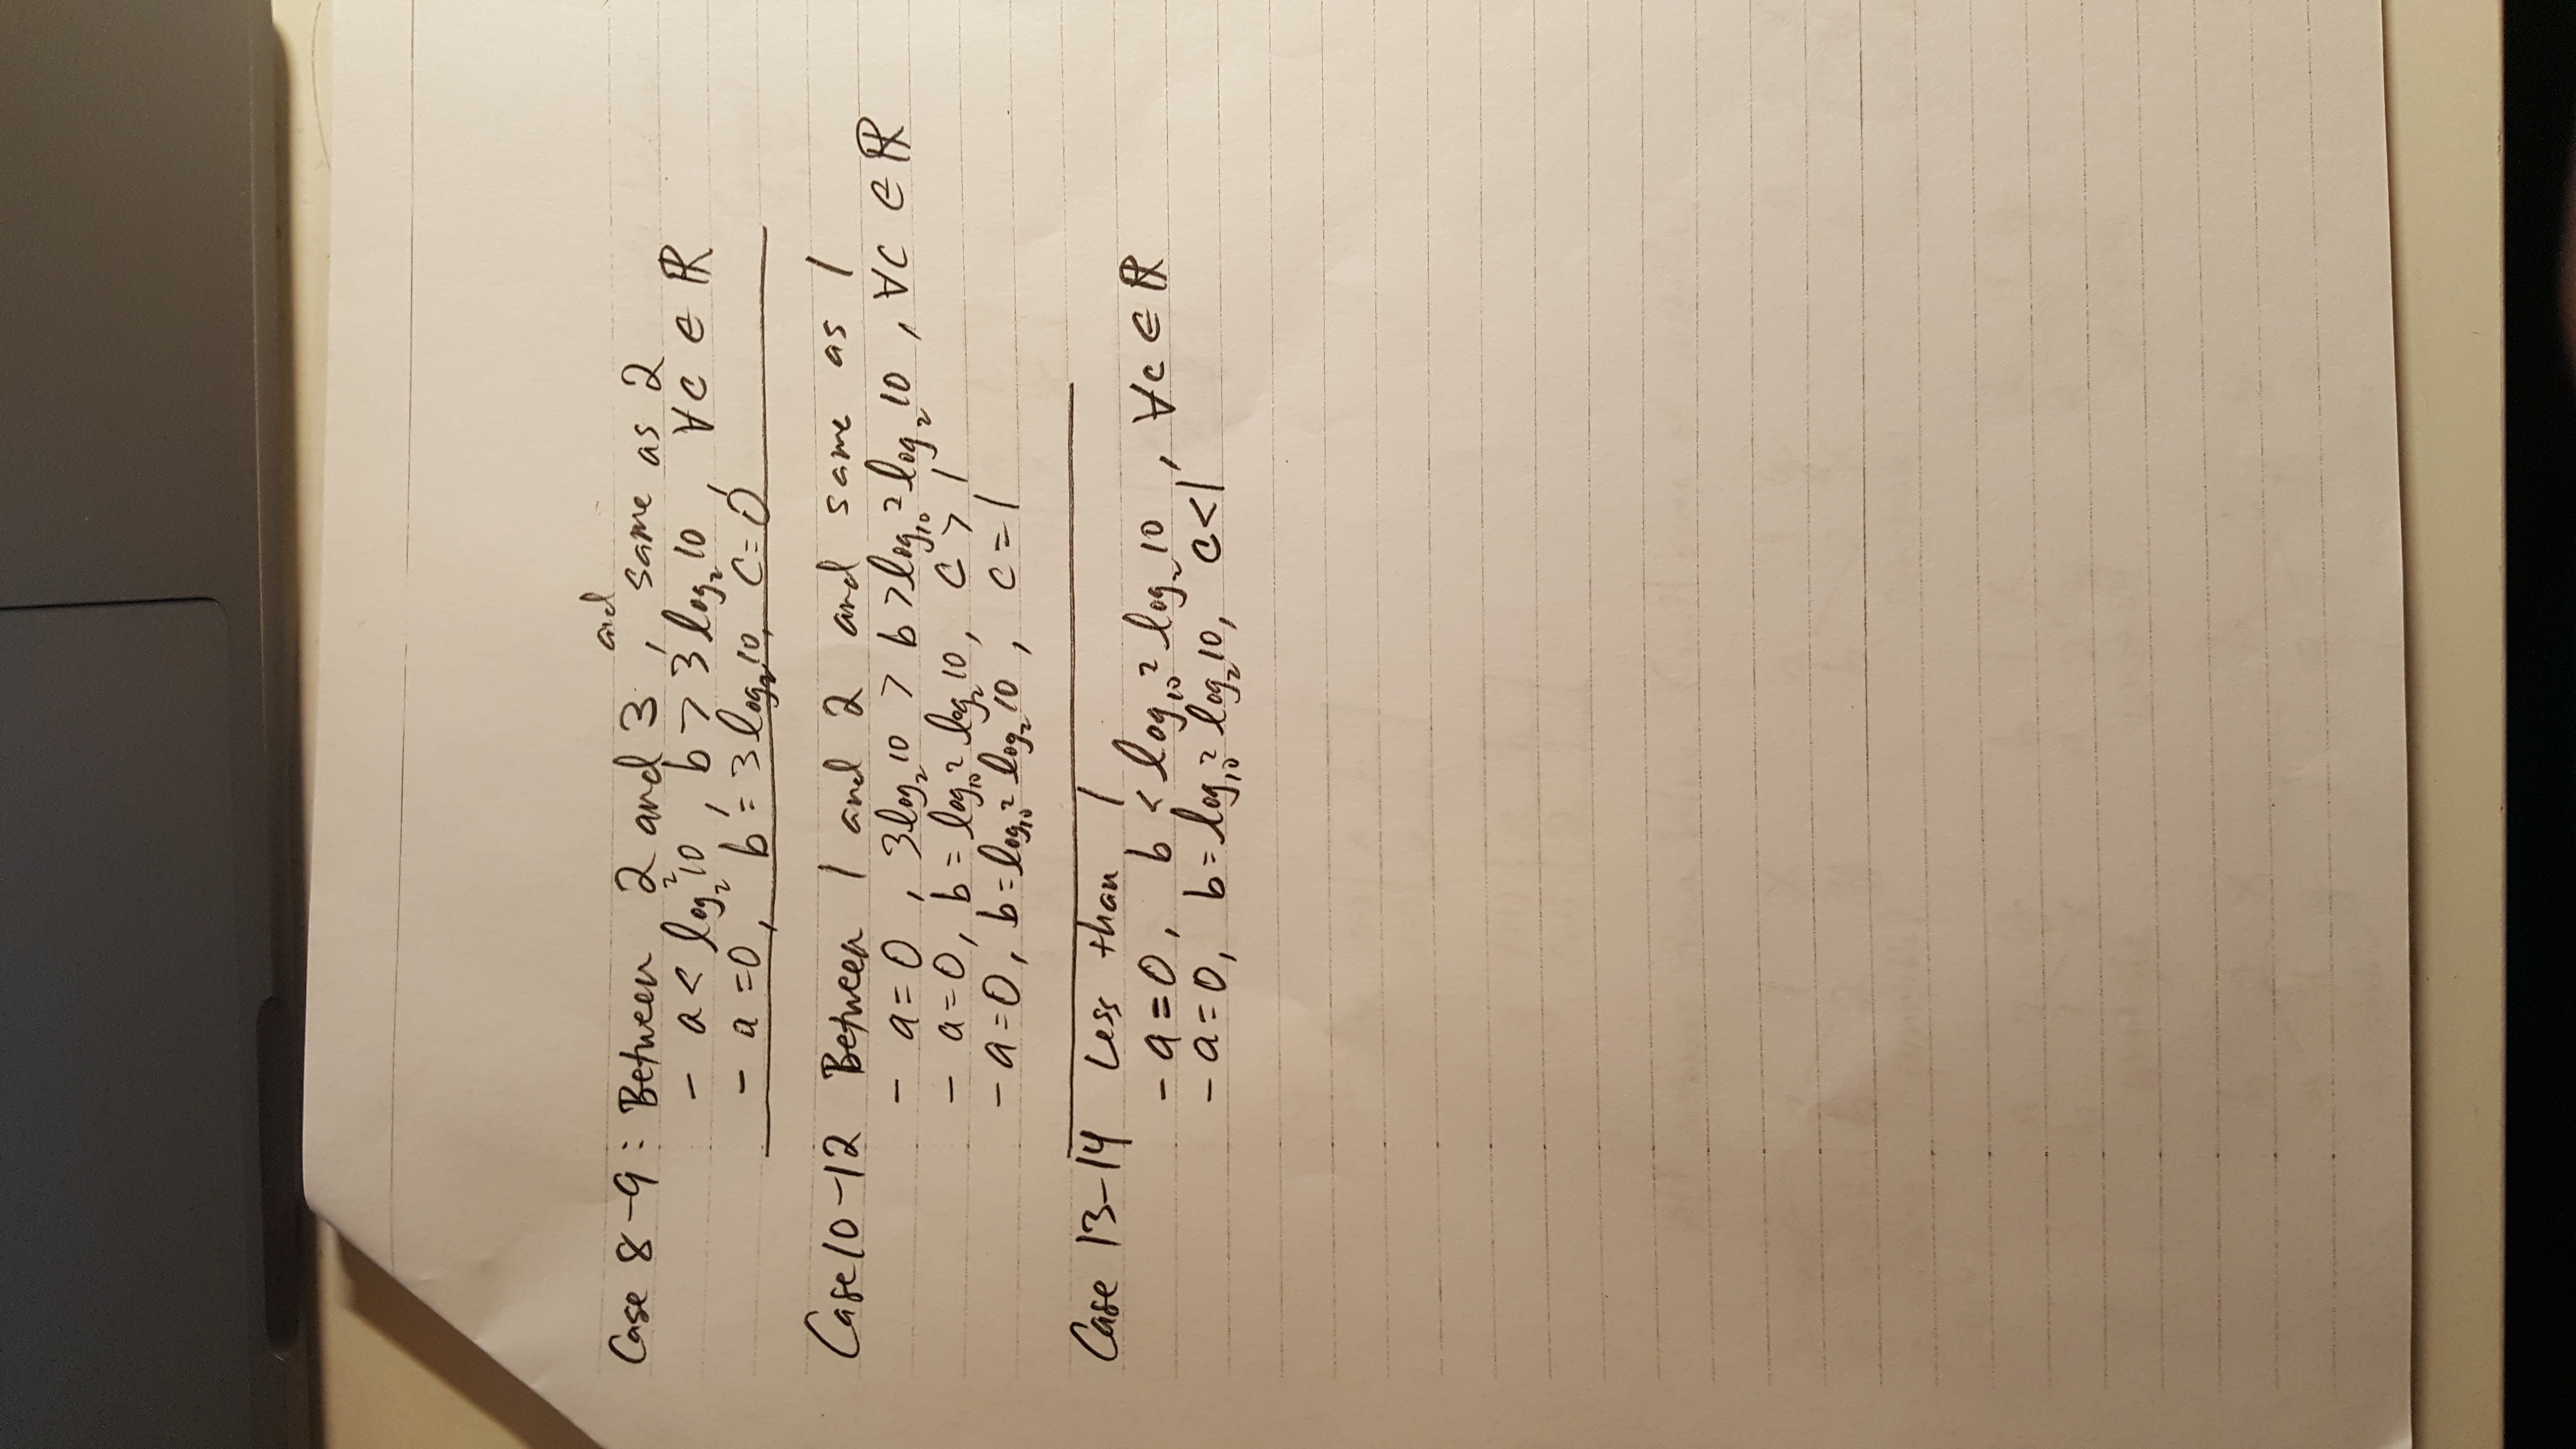 Case 8-9: Between 2 and 3, and same as 2
- a < log₂²10, b > 3log₂10, ∀c ∈ ℝ
- a=0, b = 3log₂10, c=0
Case 10-12 Between 1 and 2 and same as 1
- a=0, 3log₂10 > b > log₁₀2 log₂10, ∀c ∈ ℝ
- a=0, b = log₁₀2 log₂10, c > 1
- a=0, b = log₁₀2 log₂10, c = 1
Case 13-14 Less than 1
- a=0, b < log₁₀2 log₂10, ∀c ∈ ℝ
- a=0, b = log₁₀2 log₂10, c<1